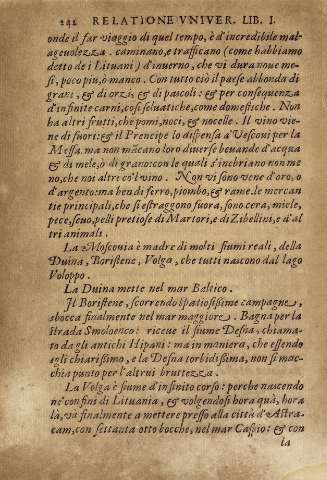 242 RELATIONE VNIVER. LIB. I.
onde il far viaggio di quel tempo, è d'incredibile mal-
ageuolezza. caminano, e trafficano (come habbiamo
detto de i Lituani) d'inuerno, che vi dura noue me-
si, poco piu, ò manco. Con tutto ciò il paese abbonda di
grani, & di orzi, & di pascoli: & per conseguenza
d'infinite carni, così seluatiche, come domestiche. Non
ha altri frutti, che pomi, noci, & nocelle. Il vino vie-
ne di fuori: & il Prencipe lo dispensa a' Vescoui per la
Messa. ma non mācano loro diuerse beuande d'acqua
& di mele, ò di grano: con le quali s'inebriano non me
no, che noi altri co'l vino. Non vi sono vene d'oro, o
d'argento: ma ben di ferro, piombo, & rame. le mercan
tie principali, che si estraggono fuora, sono cera, miele,
pece, seuo, pelli pretiose di Martori, e di Zibellini, e d'al
tri animali.
La Moscouia è madre di molti fiumi reali, della
Duina, Boristene, Volga, che tutti nascono dal lago
Voloppo.
La Duina mette nel mar Baltico.
Il Boristene, scorrendo spatiosissime campagne,
sbocca finalmente nel mar maggiore. Bagna per la
strada Smolenco: riceue il fiume Desna, chiama-
to da gli antichi Hipani: ma in maniera, che essendo
egli chiarissimo, e la Desna torbidissima, non si mac-
chia punto per l'altrui bruttezza.
La Volga è fiume d'infinito corso: perche nascendo
ne' confini di Lituania, & volgendosi hora quà, hora
là, và finalmente a mettere presso alla città d'Astra-
can, con settanta otto bocche, nel mar Caspio: & con
la